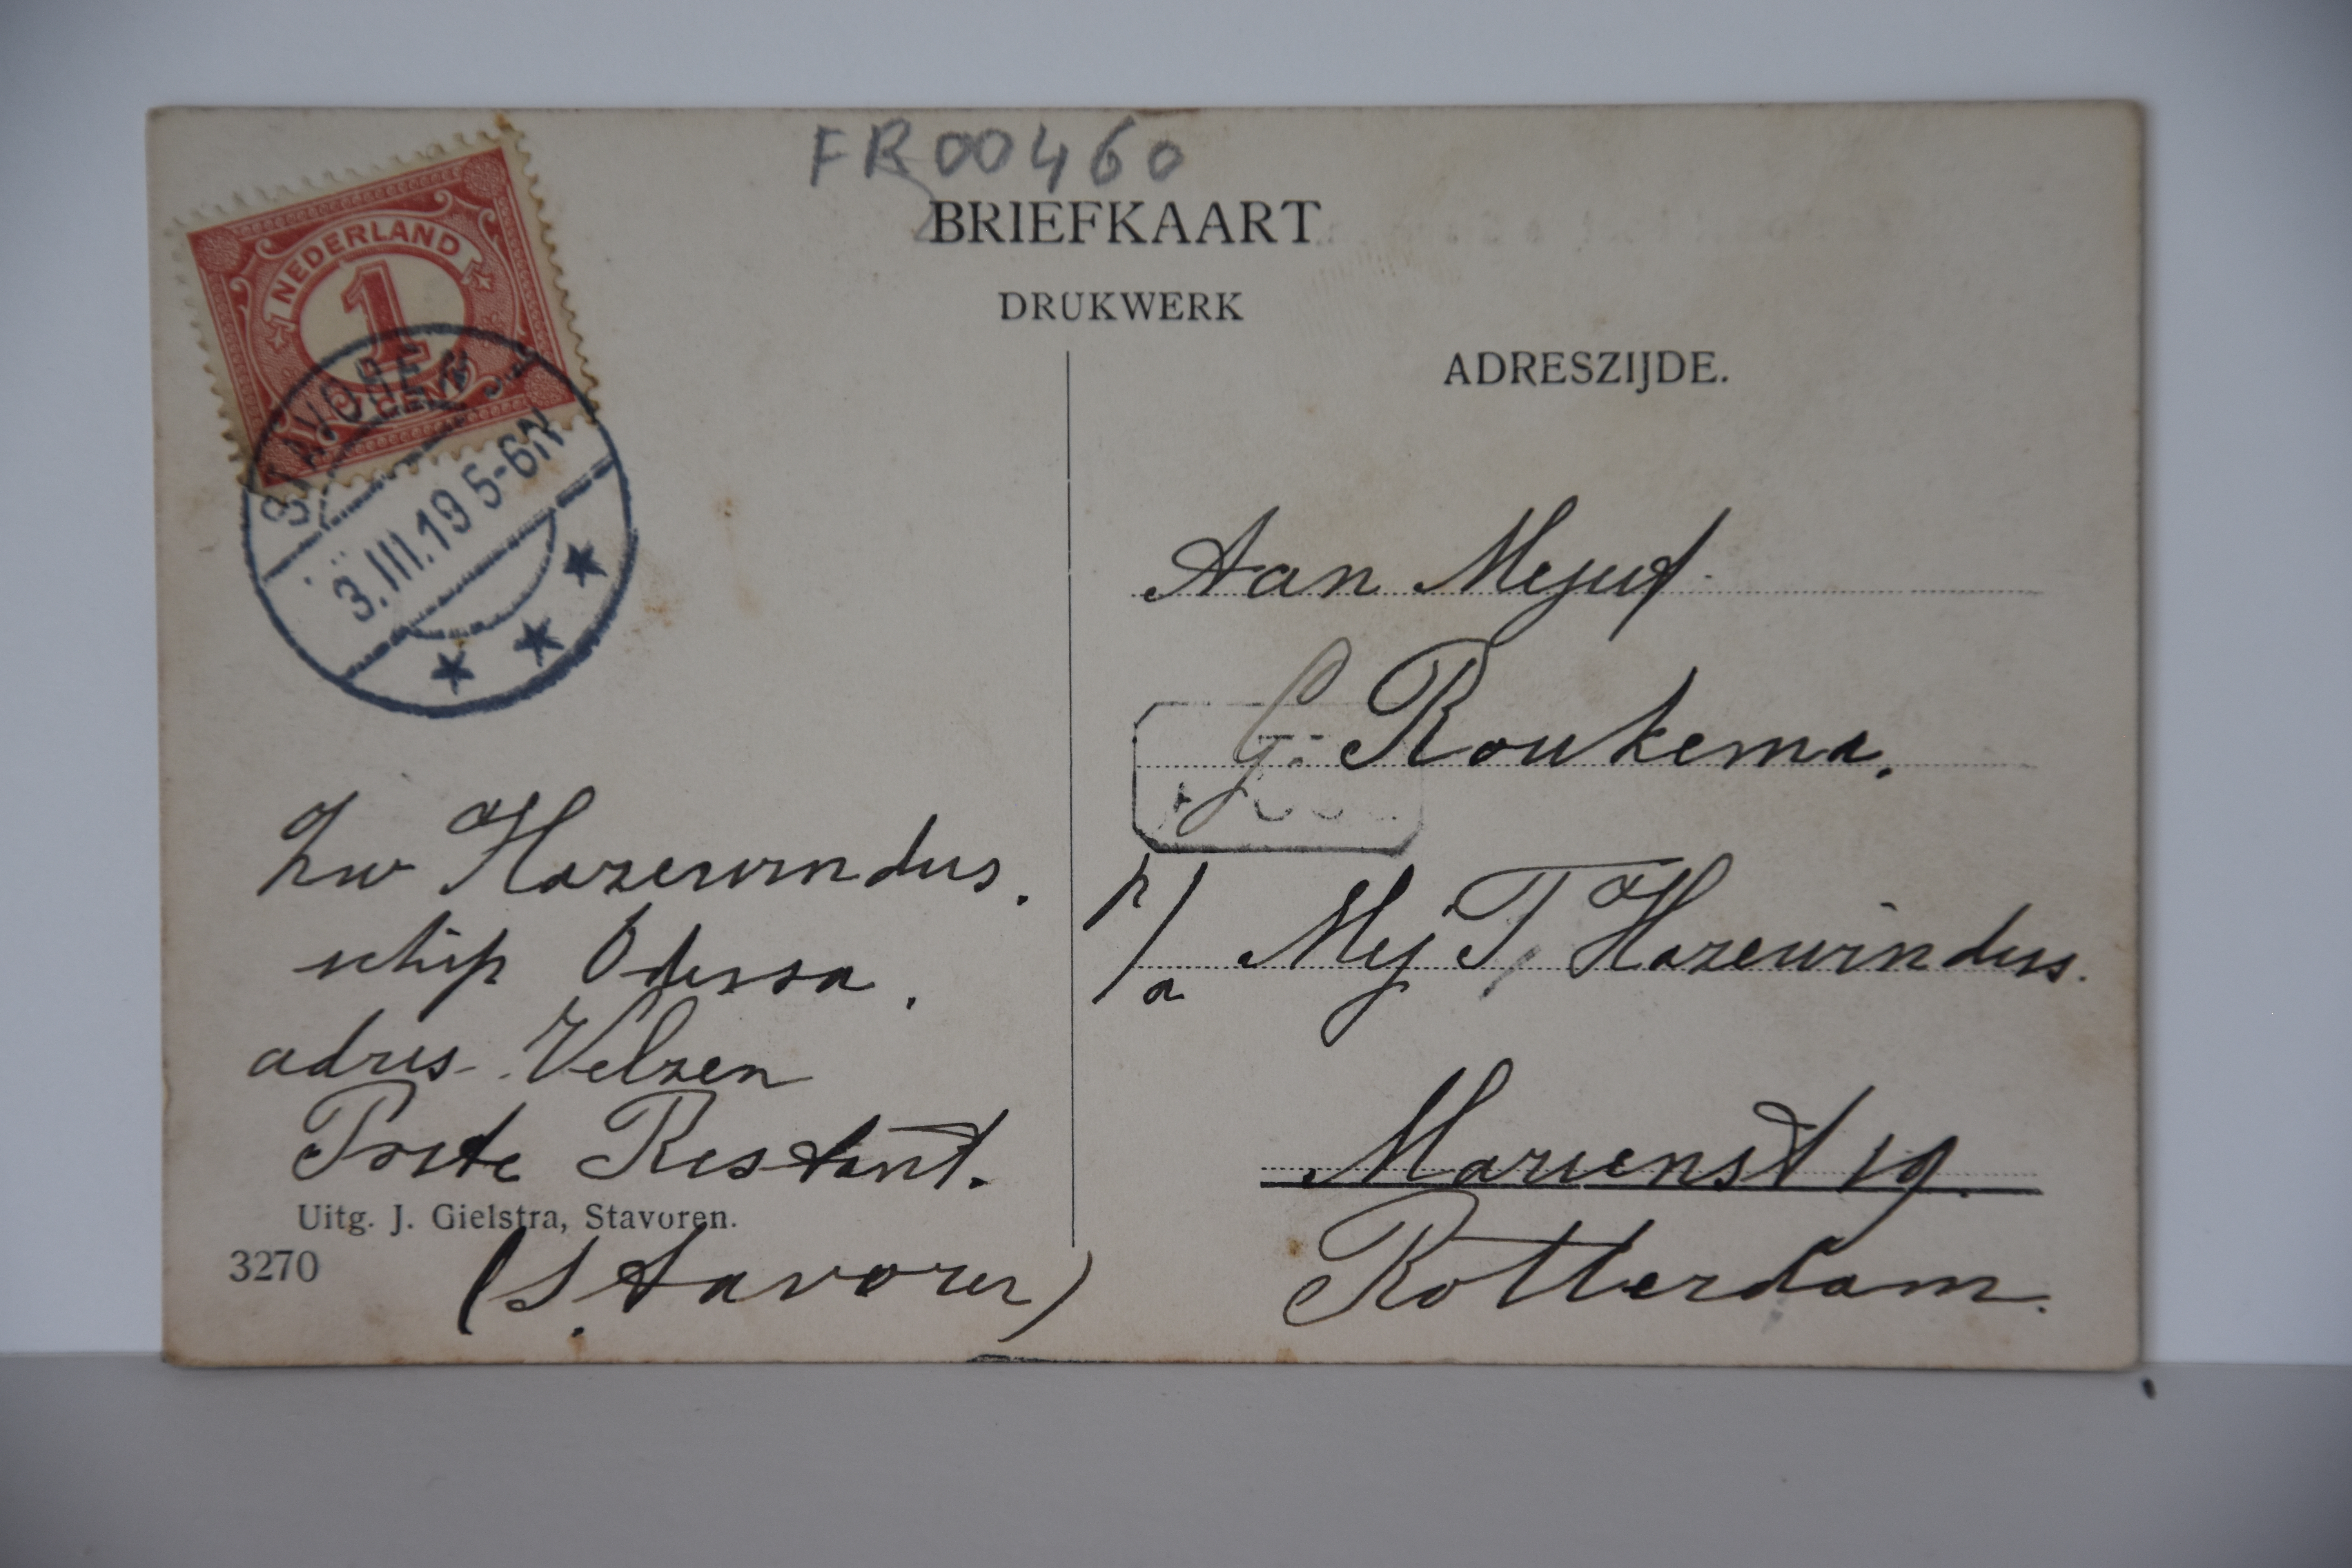 FR00460
BRIEFKAART
DRUKWERK
ADRESZIJDE.
NEDERLAND
1
CENT
STAVOREN
3.III.19 5-6N
Aan Mejuf.
G. Roukema.
p/a Mej T, Hazewindus.
Marienst 19.
Rotterdam.
Hazewindus.
schip Odessa.
adres Velzen
Poste Restant.
Uitg. J. Gielstra, Stavoren.
3270
(Stavoren)